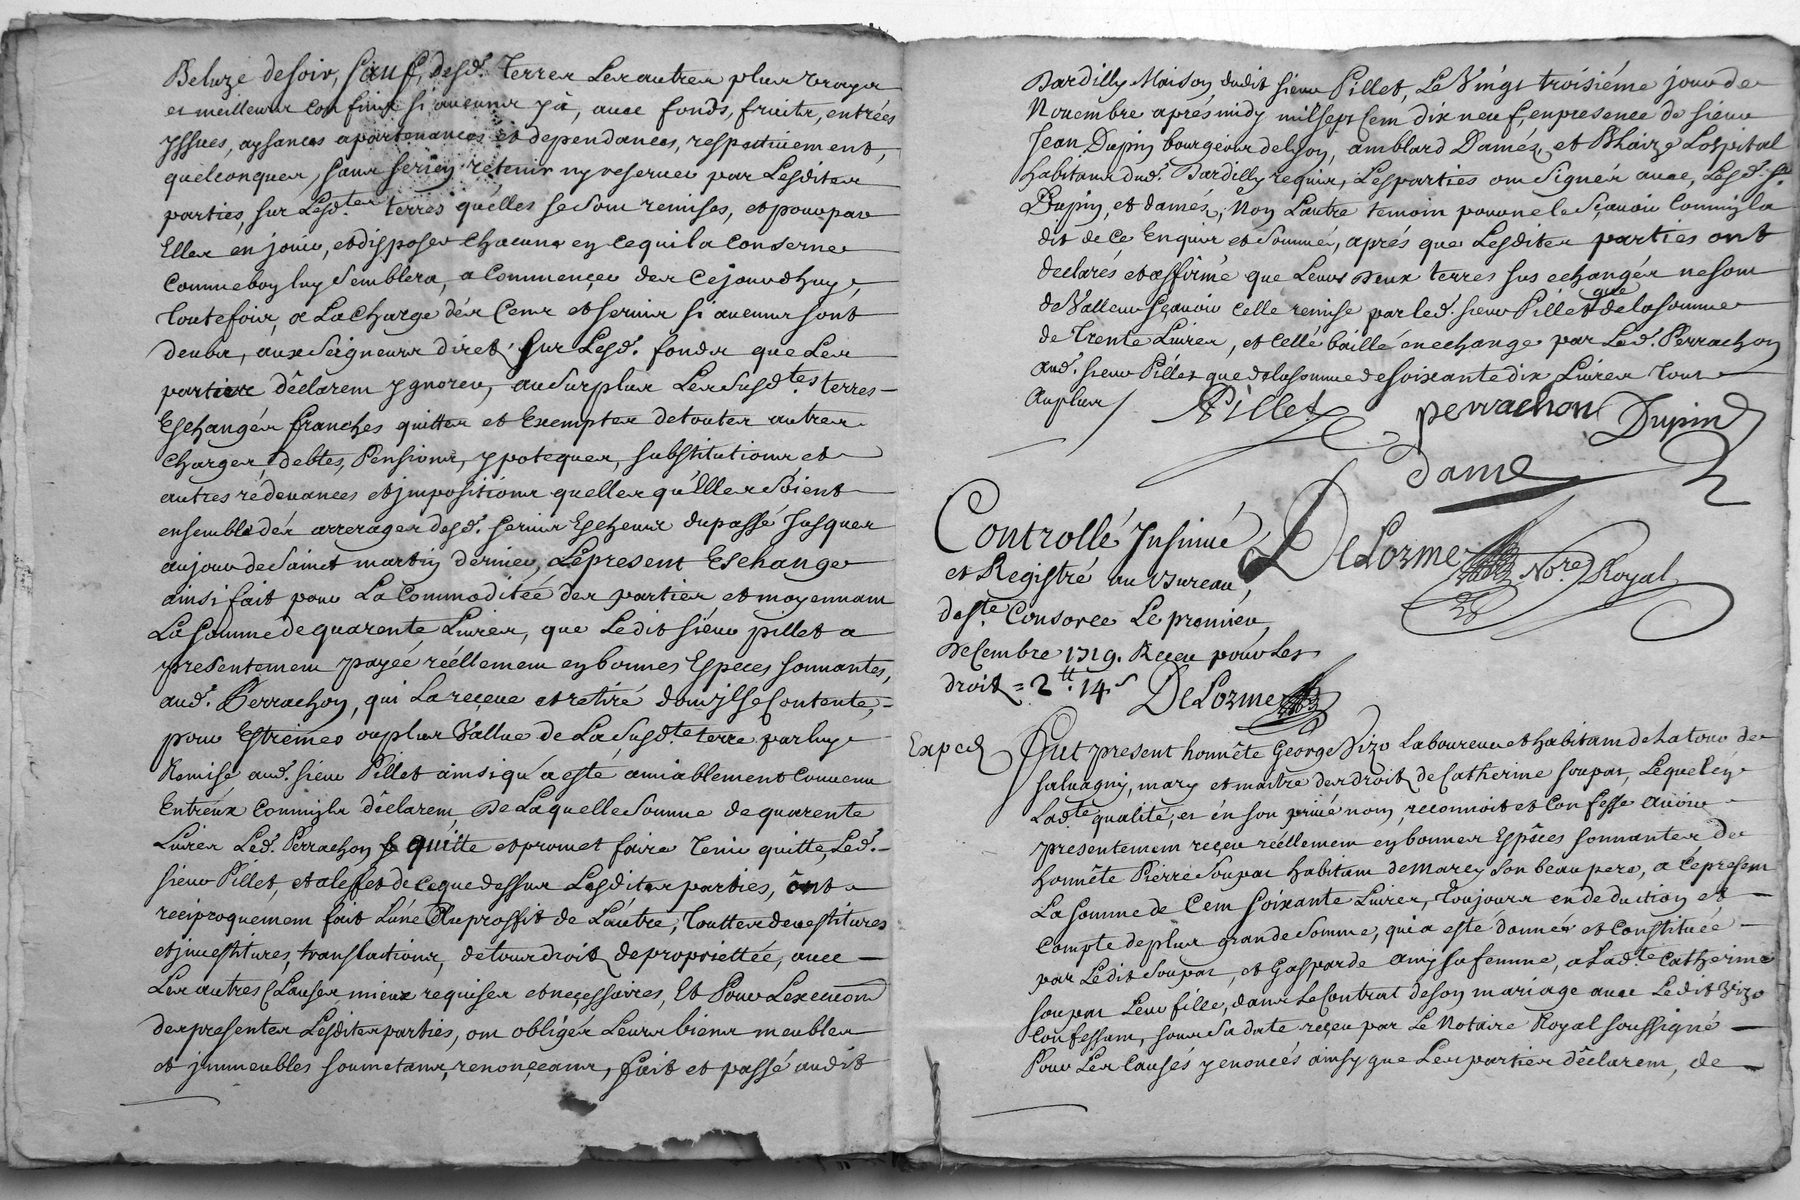 Beluze de soir, sauf, desd. terres les autres plus vrays
et meilleurs confins si aucuns y a, avec fonds, fruits, entrées
yssues, aysances apartenances et dependances, respectivement,
quelconques, sans se rien retenir ny reserver par lesdites
parties, sur lesd.tes terres quélles se sont remises, et pour par
Elles en jouir, et disposer chacune en ce qui la conserne
comme bon luy semblera, a commencer des ce jourdhuy,
toutefois, a La charge des cens et servis si aucuns sont
deubs, aux seigneurs diret, sur Lesd. fonds que Les
parties déclarent ygnorer, au surplus Les susd.tes terres
Eschangés franches quittes et Exemptes de toutes autres
charges, debtes, Pensions, ypoteques, substitutions et
autres rédevances et impositions quelles qu'Elles soient
ensemble dés arrerages desd. servis Escheus du passé jusques
au jour de Sainct martin dernier, Le present Eschange
ainsi fait pour La Commoditée des parties et moyennant
La somme de quarente Livres, que Ledit siéur pillet a
presentement payée réellement en bonnes Especes sonnantes,
aud. Perrachon, qui La reçeue et retiré dont il se Contente,
pour Estremes ou plus Vallue de La susd.te terre par luy
Remise aud. sieur Pillet ainsi qu'a esté amiablement Convenu
Entréux comm'ils déclarent, De Laquelle somme de quarente
Livres Led. Perrachon quitte et promet faire tenir quitte, Led.
sieur Pillet, et a leffet de ce que dessus Lesdites parties, ônt
réciproquement fait L'uné au proffit de Lautre, touttes devestitures
et investitures, translations, de tous droits de propriettée, avec
Les autres Clauses mieux requises et necessaires, Et Pour Lexecution
des presentes Lesdites parties, ont obligés Leurs biens meubles
et immeubles soumetans, renonçeans, fait et passé audit
Dardilly Maison dudit sieur Pillet, Le Vingt troisiéme jour de
Novembre aprés midy mil sept Cent dix neuf, en presence de sieur
Jean Dupin bourgeois de Lyon, amblard Damés, et Blaize Lospital
habitans dud. Dardilly requis, Les parties ont Signés avec, Lesd. Srs
Dupin, et damés, Non Lautre temoin pour ne le sçavoir Comm'il a
dit de ce Enquis et sommé, aprés que Lesdites parties ont
declarés et affirmé que Leurs deux terres sus echangés ne sont
de Valleur sçavoir celle remise par led. sieur Pillet que de la somme
de trente Livres, et celle baillé en echange par Led. Perrachon
aud. sieur Pillet que de la somme de soixante dix Livres tout
au plus
Pillet
perrachon
Dupin
dame
Controllé Insinué
et Registré au Bureau
de St. Consorce Le premier
Decembre 1719. Reçeu pour les
droits = 2tt. 14s
DeLorme
DeLorme No.re Royal
Exped
Fut present honnête George Vizo Laboureur et habitant de La tour de
salvagny, mary et maitre des droits de Catherine soupat, Lequel en
Lad.te qualité, et én son privé nom, reconnoit et Confesse avoir
presentement reçeu réellement en bonnes Espêces sonnantes de
honnête Pierre Soupat habitant de Marcy son beau pere, a ce present
La somme de Cent soixante Livres, toujours en deduction et
compte de plus grande somme, qui a esté donnée et Constituée
par Ledit soupat, et Gasparde amy sa femme, a Lad.te Catherine
soupat Leur fille, dans Le Contrat de son mariage avec Ledit Vizo
confessant, sous sa date reçeu par Le Notaire Royal soussigné
Pour Les Causés y enoncés ainsy que Les parties déclarent, de